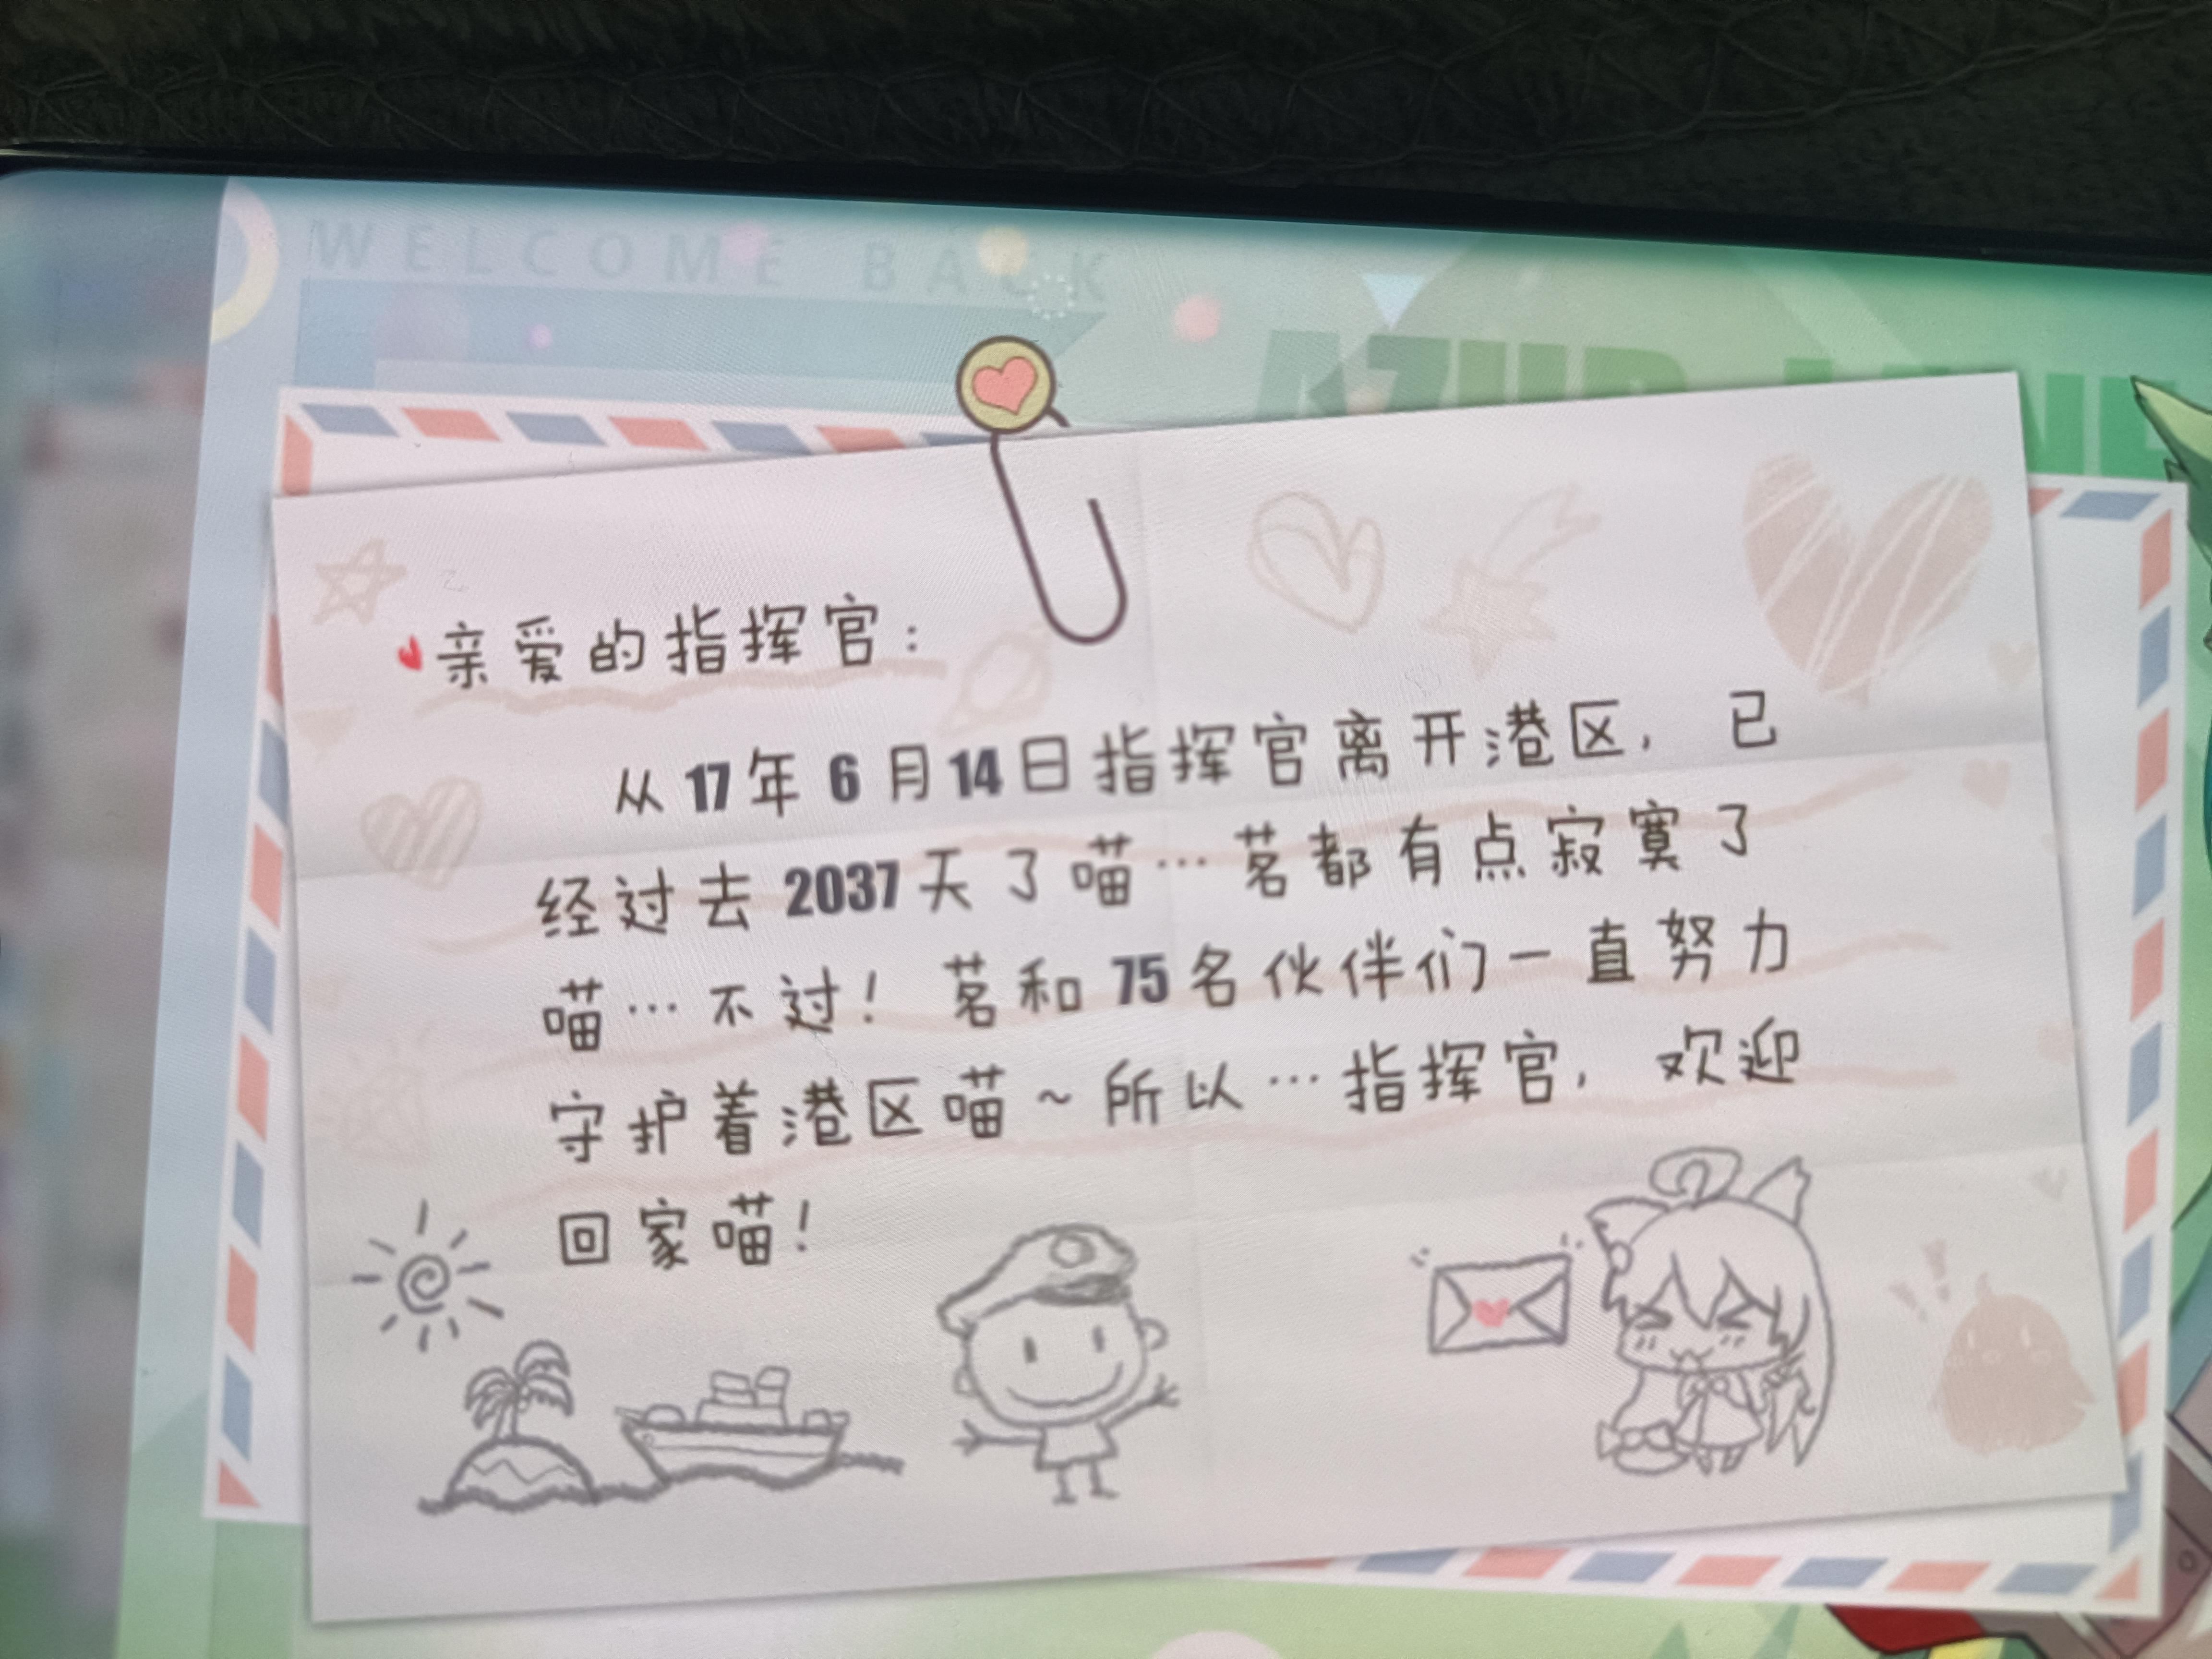 WELCOME BACK
亲爱的指挥官：
从17年6月14日指挥官离开港区，已
经过去2037天了喵…茗都有点寂寞了
喵…不过！茗和75名伙伴们一直努力
守护着港区喵~所以…指挥官，欢迎
回家喵！